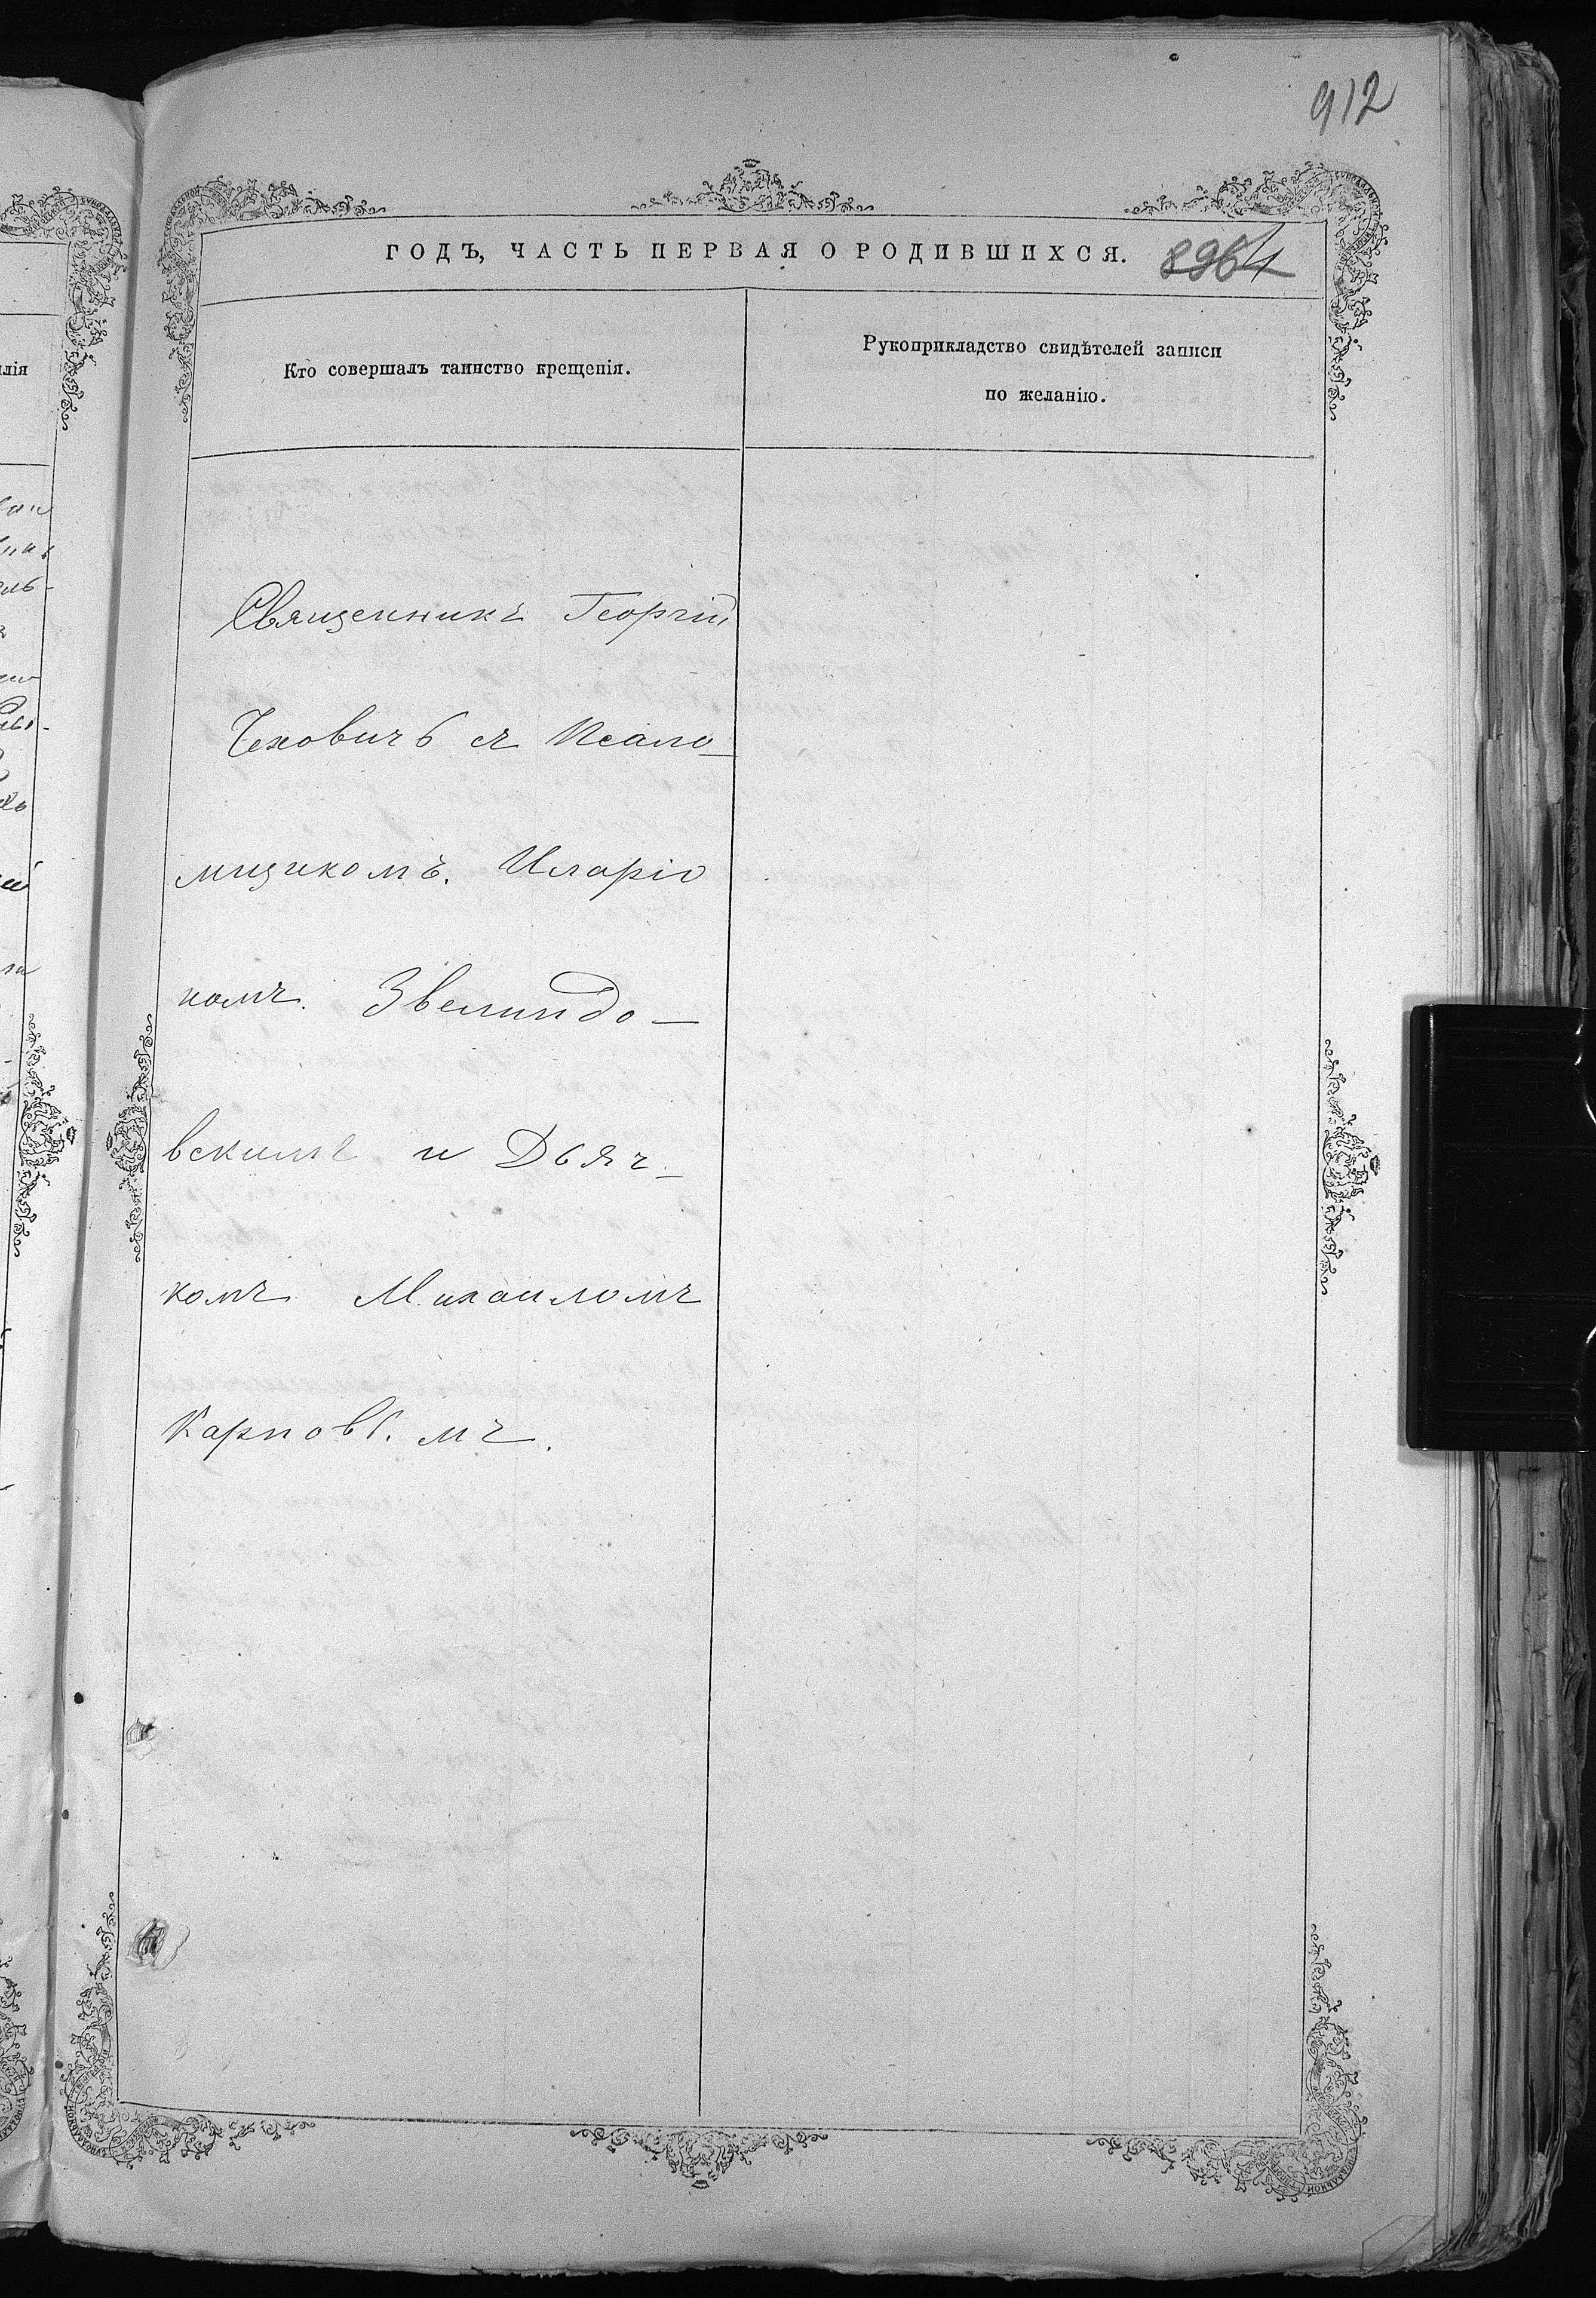 912
ГОДЪ, ЧАСТЬ ПЕРВАЯ О РОДИВШИХСЯ.
8964
Кто совершалъ таинство крещенія.
Рукоприкладство свидѣтелей записи
по желанію.
лія
Священникъ Георгій
Чеховичь съ Псало-
мщикомъ. Иларіо
номъ. Звелиндо-
вскимъ и Дьяч-
комъ Михаиломъ
Карповымъ.